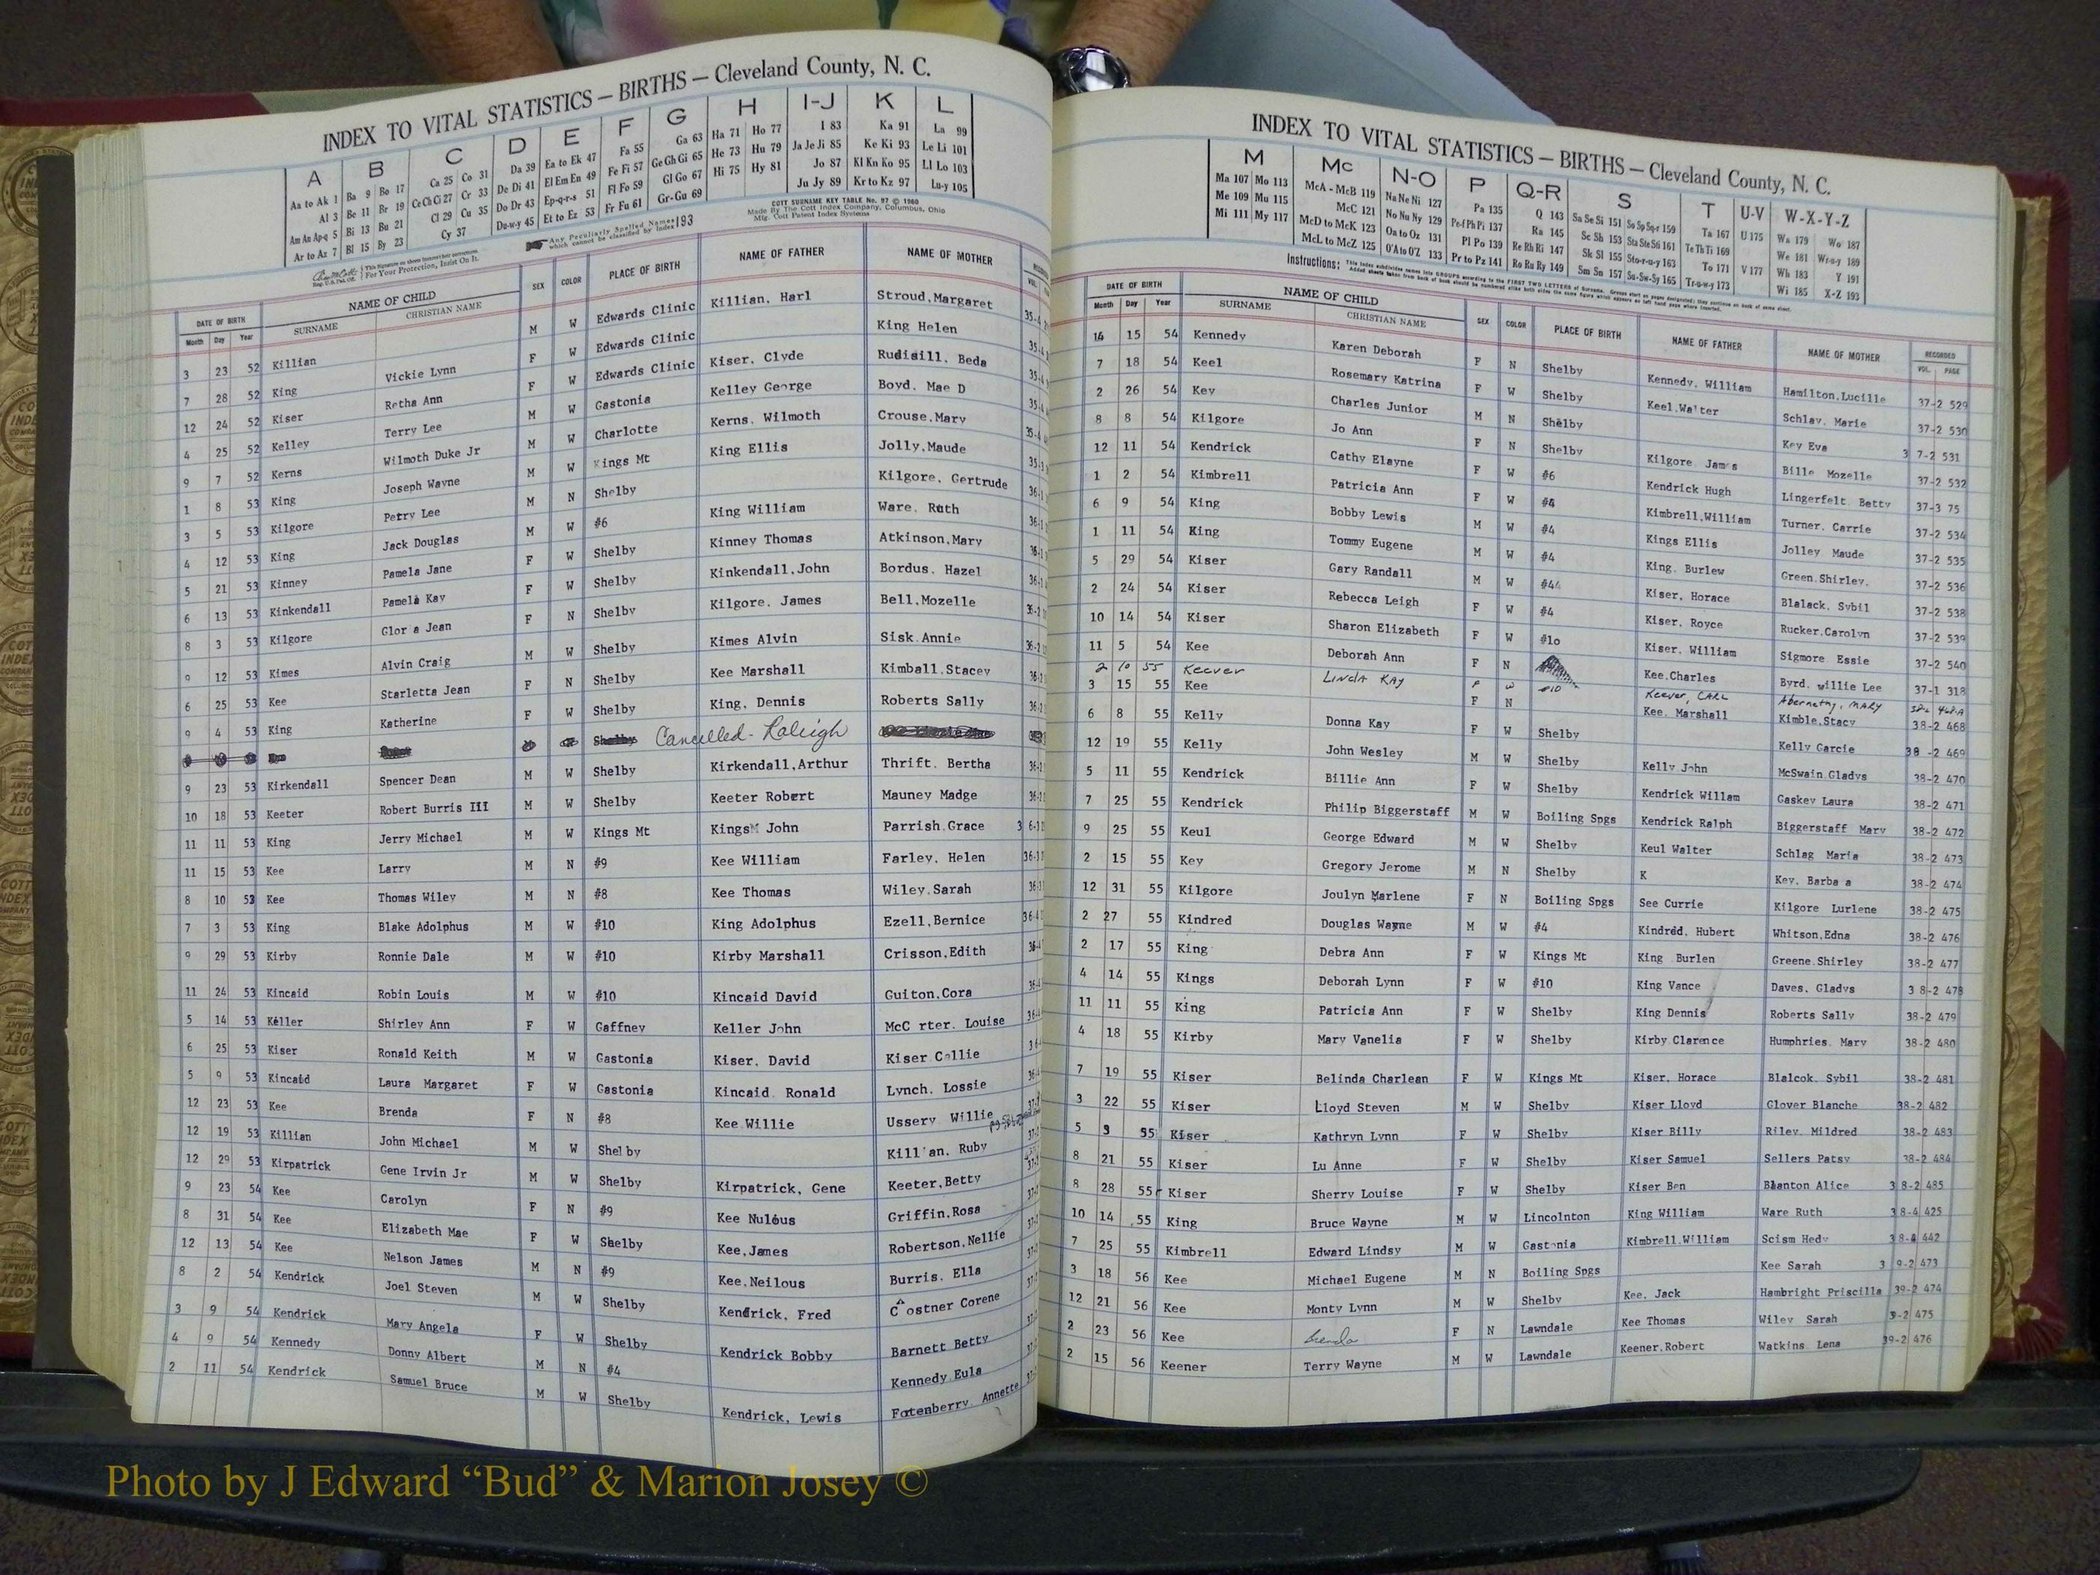 INDEX TO VITAL STATISTICS — BIRTHS — Cleveland County, N. C.
A B C D E F G H I-J K L
Aa to Ak 1 Ba 9 Bo 17 Ca 25 Co 31 Da 39 Ea to Ek 47 Fa 55 Ga 63 Ha 71 Ho 77 I 83 Ka 91 La 99
Al 3 Be 11 Br 19 Ce Ch Ci 27 Cr 33 De Di 41 El Em En 49 Fe Fi 57 Ge Gh Gi 65 He 73 Hu 79 Ja Je Ji 85 Ke Ki 93 Le Li 101
Am An Ap-q 5 Bi 13 Bu 21 Cl 29 Cu 35 Do Dr 43 Ep-q-r-s 51 Fl Fo 59 Gl Go 67 Hi 75 Hy 81 Jo 87 Kl Kn Ko 95 Ll Lo 103
Ar to Az 7 Bl 15 By 23 Cy 37 Du-w-y 45 Et to Ez 53 Fr Fu 61 Gr-Gu 69 Ju Jy 89 Kr to Kz 97 Lu-y 105
For Your Protection, Insist On It.
Any Peculiarly Spelled Names which cannot be classified by Index 193
COTT SURNAME KEY TABLE No. 97 © 1960
Made By The Cott Index Company, Columbus, Ohio
Mfg. Cott Patent Index Systems
DATE OF BIRTH NAME OF CHILD SEX COLOR PLACE OF BIRTH NAME OF FATHER NAME OF MOTHER
Month Day Year SURNAME CHRISTIAN NAME
3 23 52 Killian M W Edwards Clinic Killian, Harl Stroud, Margaret
7 28 52 King Vickie Lynn F W Edwards Clinic King Helen
12 24 52 Kiser Retha Ann F W Edwards Clinic Kiser, Clyde Rudisill, Beda
4 25 52 Kelley Terry Lee M W Gastonia Kelley George Boyd. Mae D
9 7 52 Kerns Wilmoth Duke Jr M W Charlotte Kerns, Wilmoth Crouse, Mary
1 8 53 King Joseph Wayne M W Kings Mt King Ellis Jolly, Maude
3 5 53 Kilgore Perry Lee M N Shelby Kilgore, Gertrude
4 12 53 King Jack Douglas M W #6 King William Ware, Ruth
5 21 53 Kinney Pamela Jane F W Shelby Kinney Thomas Atkinson, Mary
6 13 53 Kinkendall Pamela Kay F W Shelby Kinkendall, John Bordus, Hazel
8 3 53 Kilgore Glor a Jean F N Shelby Kilgore, James Bell, Mozelle
9 12 53 Kimes Alvin Craig M W Shelby Kimes Alvin Sisk Annie
6 25 53 Kee Starletta Jean F N Shelby Kee Marshall Kimball, Stacey
9 4 53 King Katherine F W Shelby King, Dennis Roberts Sally
Shelby Cancelled - Raleigh
9 23 53 Kirkendall Spencer Dean M W Shelby Kirkendall, Arthur Thrift, Bertha
10 18 53 Keeter Robert Burris III M W Shelby Keeter Robert Mauney Madge
11 11 53 King Jerry Michael M W Kings Mt KingsM John Parrish Grace
11 15 53 Kee Larry M N #9 Kee William Farley, Helen
8 10 53 Kee Thomas Wiley M N #8 Kee Thomas Wiley Sarah
7 3 53 King Blake Adolphus M W #10 King Adolphus Ezell, Bernice
9 29 53 Kirby Ronnie Dale M W #10 Kirby Marshall Crisson, Edith
11 24 53 Kincaid Robin Louis M W #10 Kincaid David Guiton, Cora
5 14 53 Keller Shirley Ann F W Gaffney Keller John McC rter, Louise
6 25 53 Kiser Ronald Keith M W Gastonia Kiser, David Kiser Callie
5 9 53 Kincaid Laura Margaret F W Gastonia Kincaid Ronald Lynch, Lossie
12 23 53 Kee Brenda F N #8 Kee Willie Ussery Willie
12 19 53 Killian John Michael M W Shelby Kill'an, Ruby
12 29 53 Kirpatrick Gene Irvin Jr M W Shelby Kirpatrick, Gene Keeter, Betty
9 23 54 Kee Carolyn F N #9 Kee Nulous Griffin, Rosa
8 31 54 Kee Elizabeth Mae F W Shelby Kee, James Robertson, Nellie
12 13 54 Kee Nelson James M N #9 Kee, Neilous Burris, Ella
8 2 54 Kendrick Joel Steven M W Shelby Kendrick, Fred Costner Corene
3 9 54 Kendrick Mary Angela F W Shelby Kendrick Bobby Barnett Betty
4 9 54 Kennedy Donny Albert M N #4 Kennedy Eula
2 11 54 Kendrick Samuel Bruce M W Shelby Kendrick, Lewis Fotenberry, Annette
INDEX TO VITAL STATISTICS — BIRTHS — Cleveland County, N. C.
M Mc N-O P Q-R S T U-V W-X-Y-Z
Ma 107 Mo 113 McA - McB 119 Na Ne Ni 127 Pa 135 Q 143 Sa Se Si 151 So Sp Sq-r 159 Ta 167 U 175 Wa 179 Wo 187
Me 109 Mu 115 McC 121 No Nu Ny 129 Pe-f Ph Pi 137 Ra 145 Sc Sh 153 Sta Ste Sti 161 Te Th Ti 169 We 181 Wr-u-y 189
Mi 111 My 117 McD to McK 123 Oa to Oz 131 Pl Po 139 Re Rh Ri 147 Sk Sl 155 Sto-r-u-y 163 To 171 V 177 Wh 183 Y 191
McL to McZ 125 O'A to O'Z 133 Pr to Pz 141 Ro Ru Ry 149 Sm Sn 157 Su-Sw-Sy 165 Tr-u-w-y 173 Wi 185 X-Z 193
DATE OF BIRTH NAME OF CHILD SEX COLOR PLACE OF BIRTH NAME OF FATHER NAME OF MOTHER RECORDED
Month Day Year SURNAME CHRISTIAN NAME VOL. PAGE
14 15 54 Kennedy Karen Deborah F N Shelby Kennedy, William Hamilton, Lucille 37-2 529
7 18 54 Keel Rosemary Katrina F W Shelby Keel, Walter Schlay, Marie 37-2 530
2 26 54 Key Charles Junior M N Shelby Key Eva 3 7-2 531
8 8 54 Kilgore Jo Ann F N Shelby Kilgore James Bille Mozelle 37-2 532
12 11 54 Kendrick Cathy Elayne F W #6 Kendrick Hugh Lingerfelt, Betty 37-3 75
1 2 54 Kimbrell Patricia Ann F W #4 Kimbrell, William Turner, Carrie 37-2 534
6 9 54 King Bobby Lewis M W #4 Kings Ellis Jolley Maude 37-2 535
1 11 54 King Tommy Eugene M W #4 King, Burlew Green, Shirley, 37-2 536
5 29 54 Kiser Gary Randall M W #44 Kiser, Horace Blalack, Sybil 37-2 538
2 24 54 Kiser Rebecca Leigh F W #4 Kiser, Royce Rucker, Carolyn 37-2 539
10 14 54 Kiser Sharon Elizabeth F W #10 Kiser, William Sigmore Essie 37-2 540
11 5 54 Kee Deborah Ann F N Kee, Charles Byrd, willie Lee 37-1 318
2 10 55 Keever Linda Kay F W #10 Keever, Carl Abernethy, Mary
3 15 55 Kee F N Kee, Marshall Kimble, Stacy 38-2 468
6 8 55 Kelly Donna Kay F W Shelby Kelly Garcie 38 -2 469
12 19 55 Kelly John Wesley M W Shelby Kelly John McSwain, Gladys 38-2 470
5 11 55 Kendrick Billie Ann F W Shelby Kendrick Willam Gaskey Laura 38-2 471
7 25 55 Kendrick Philip Biggerstaff M W Boiling Spgs Kendrick Ralph Biggerstaff Mary 38-2 472
9 25 55 Keul George Edward M W Shelby Keul Walter Schlag Maria 38-2 473
2 15 55 Key Gregory Jerome M N Shelby K Key, Barba a 38-2 474
12 31 55 Kilgore Joulyn Marlene F N Boiling Spgs See Currie Kilgore Lurlene 38-2 475
2 27 55 Kindred Douglas Wayne M W #4 Kindred, Hubert Whitson, Edna 38-2 476
2 17 55 King Debra Ann F W Kings Mt King Burlen Greene, Shirley 38-2 477
4 14 55 Kings Deborah Lynn F W #10 King Vance Daves, Gladys 3 8-2 478
11 11 55 King Patricia Ann F W Shelby King Dennis Roberts Sally 38-2 479
4 18 55 Kirby Mary Vanelia F W Shelby Kirby Clarence Humphries, Mary 38-2 480
7 19 55 Kiser Belinda Charlean F W Kings Mt Kiser, Horace Blalcok, Sybil 38-2 481
3 22 55 Kiser Lloyd Steven M W Shelby Kiser Lloyd Glover Blanche 38-2 482
5 3 55 Kiser Kathryn Lynn F W Shelby Kiser Billy Riley, Mildred 38-2 483
8 21 55 Kiser Lu Anne F W Shelby Kiser Samuel Sellers Patsy 38-2 484
8 28 55 Kiser Sherry Louise F W Shelby Kiser Ben Blanton Alice 3 8-2 485
10 14 55 King Bruce Wayne M W Lincolnton King William Ware Ruth 38-4 425
7 25 55 Kimbrell Edward Lindsy M W Gastonia Kimbrell, William Scism Hedy 38-4 442
3 18 56 Kee Michael Eugene M N Boiling Spgs Kee Sarah 3 9-2 473
12 21 56 Kee Monty Lynn M W Shelby Kee, Jack Hambright Priscilla 39-2 474
2 23 56 Kee Brenda F N Lawndale Kee Thomas Wiley Sarah 9-2 475
2 15 56 Keener Terry Wayne M W Lawndale Keener, Robert Watkins Lena 39-2 476
Photo by J Edward “Bud” & Marion Josey ©